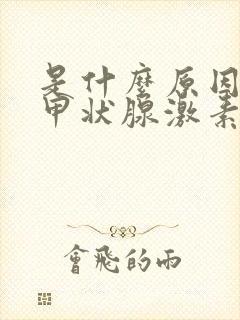 是什麼原因
甲狀腺激素
會飛的雨